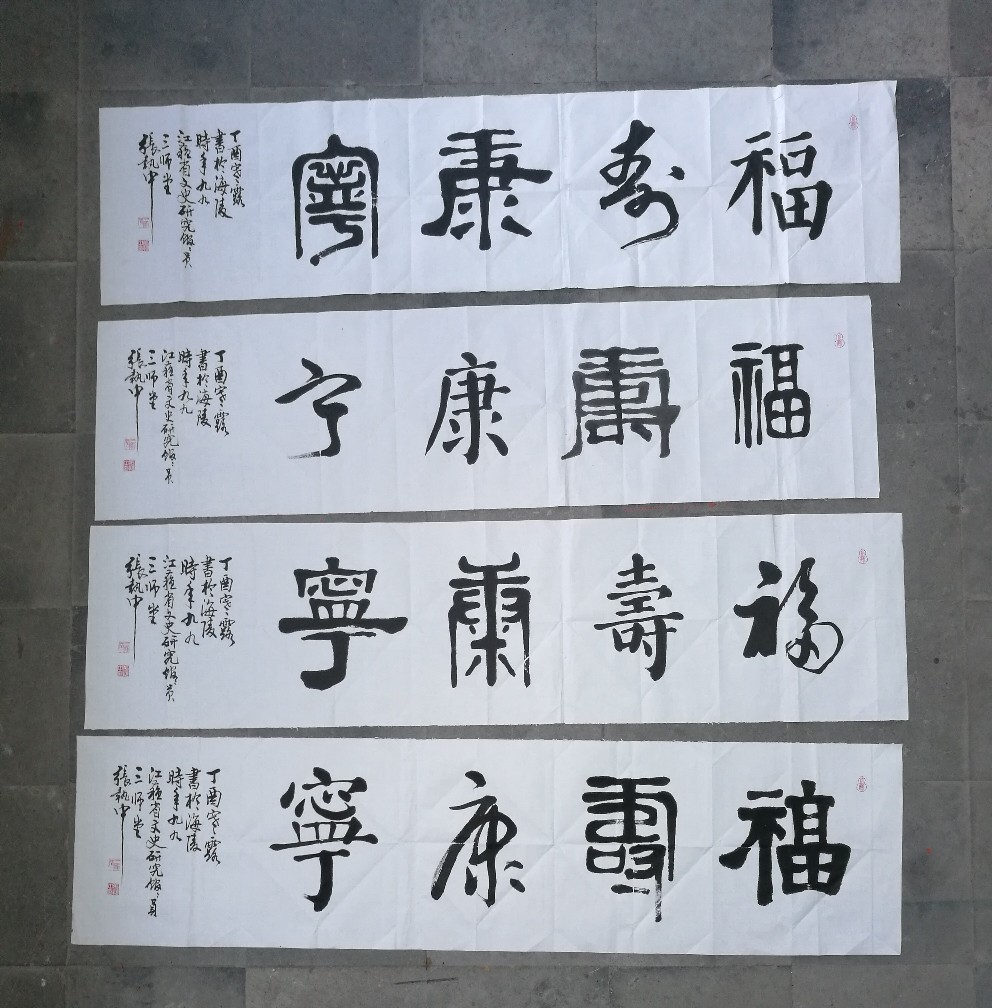 福寿康寧
丁酉寒露
書於海陵
時年九九
江蘇省文史研究館〻員
三师堂
張執中
福壽康宁
丁酉寒〻露
書於海陵
時年九九
江蘇省文史研究館〻員
三师堂
張執中
福壽康寧
丁酉寒〻露
書於海陵
時年九九
江蘇省文史研究館〻員
三师堂
張執中
福壽康寧
丁酉寒〻露
書於海陵
時年九九
江蘇省文史研究館〻員
三师堂
張執中